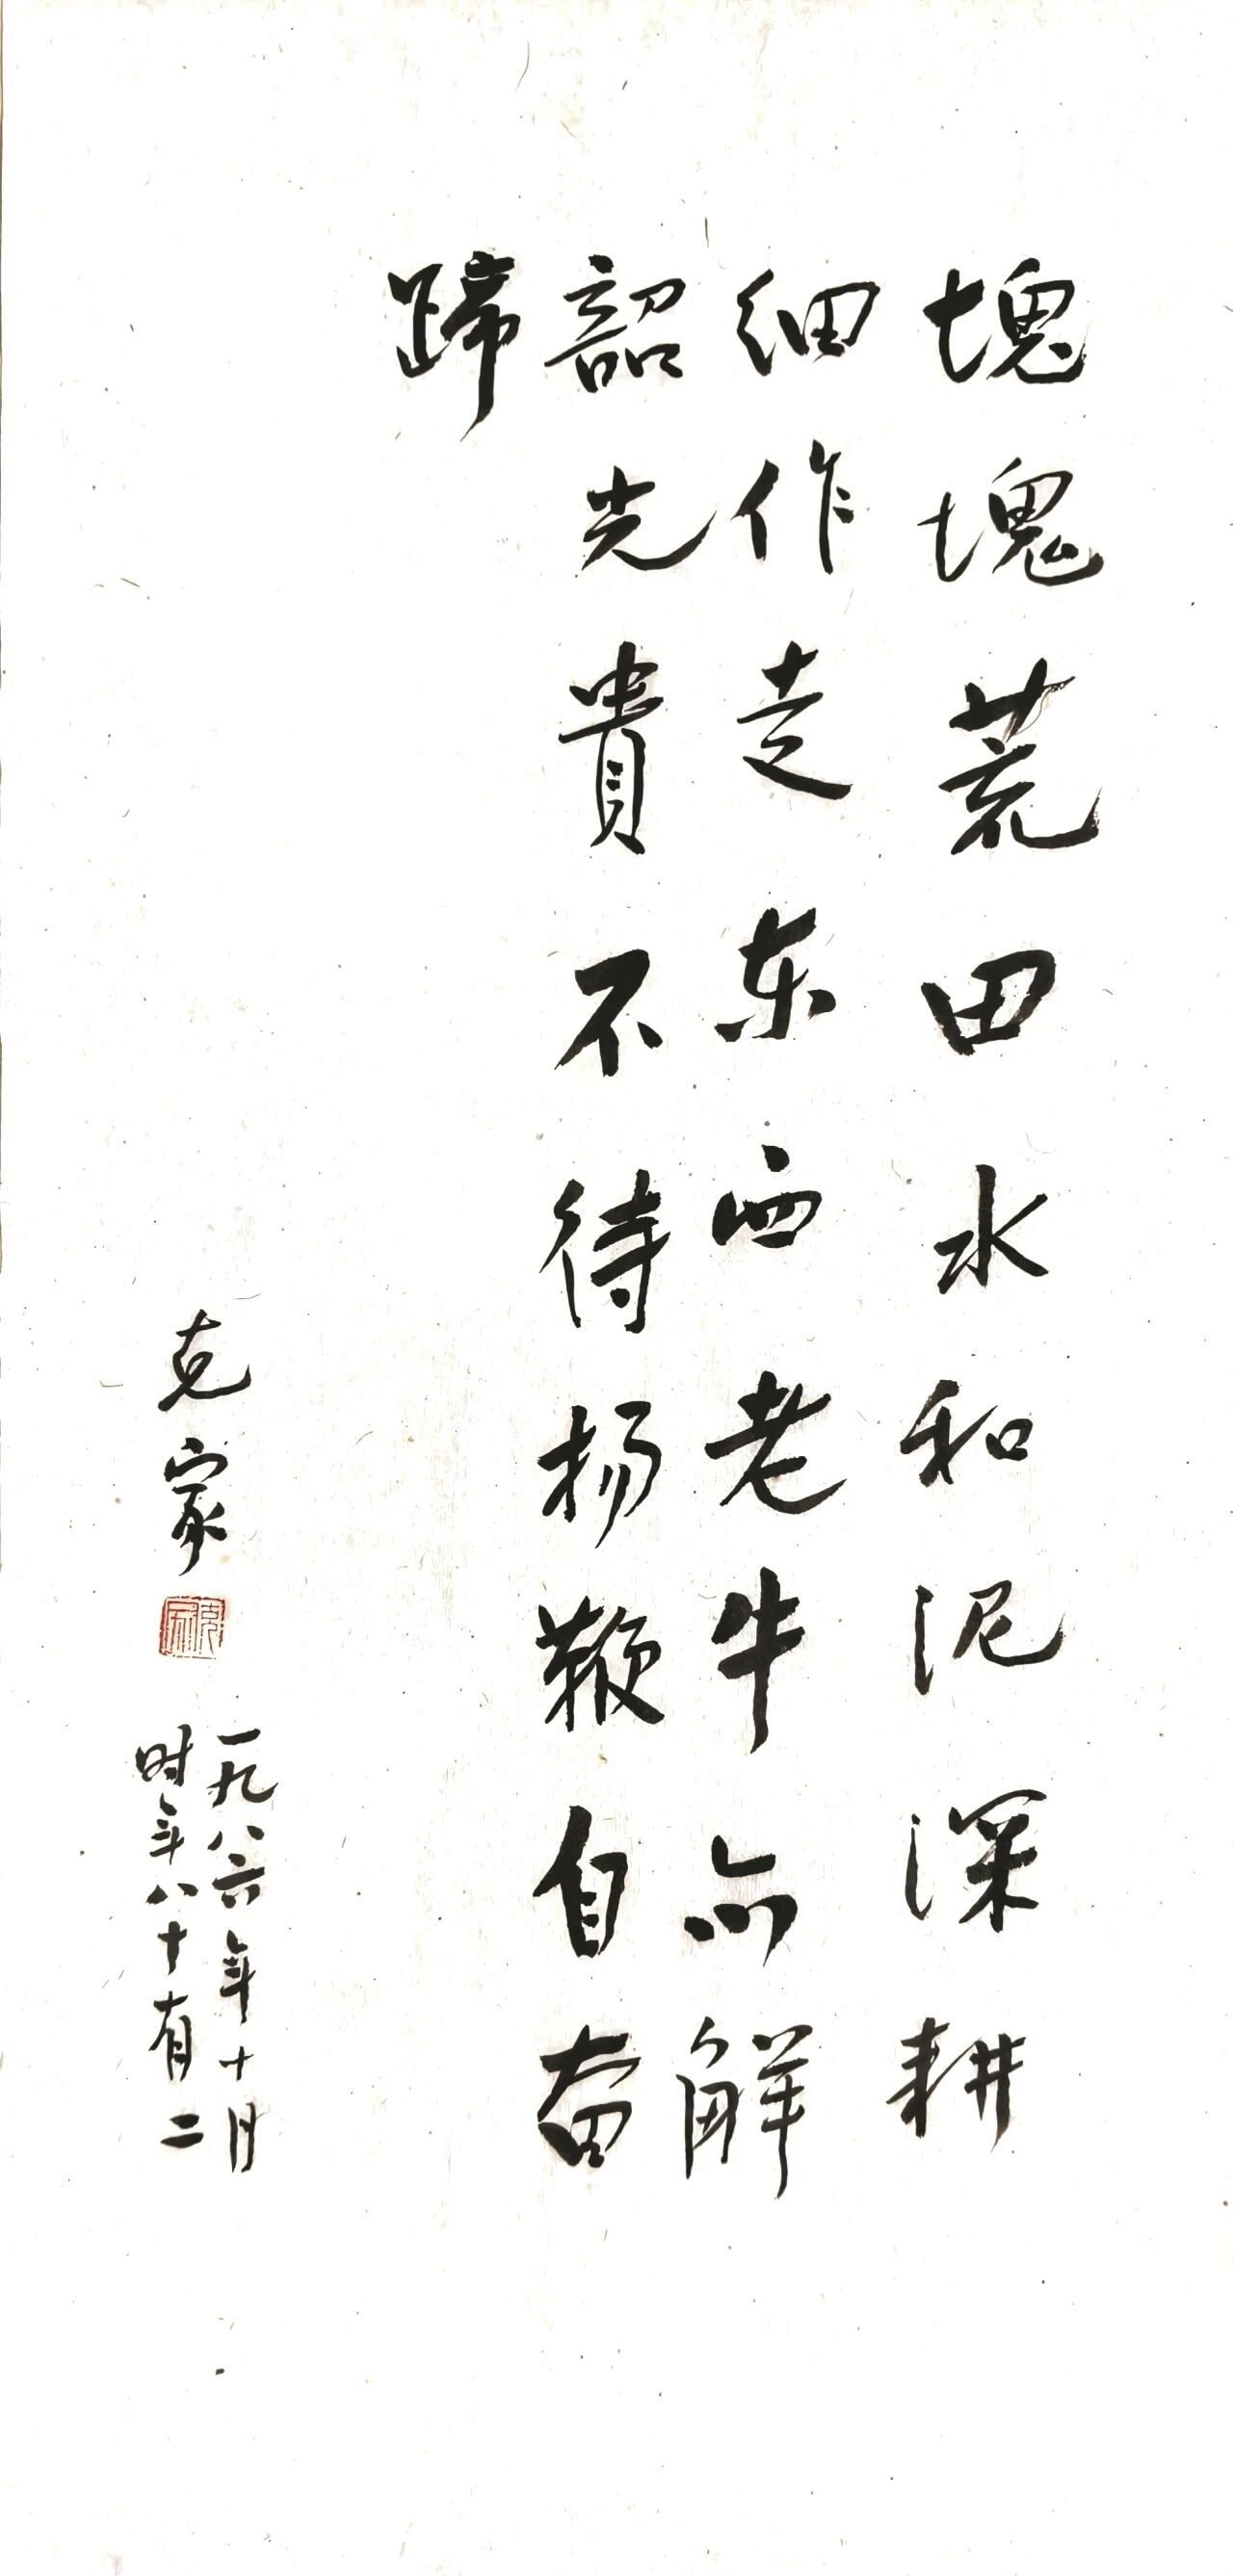 塊塊荒田水和泥深耕
细作走东西老牛亦解
韶光貴不待扬鞭自奋
蹄
克家
克家
一九八六年十月
时年八十有二